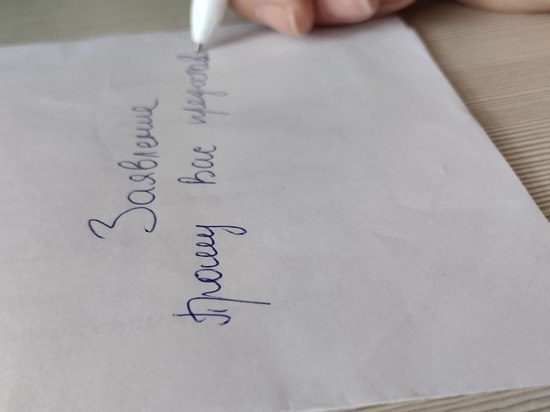 Заявление
Прошу вас предостав